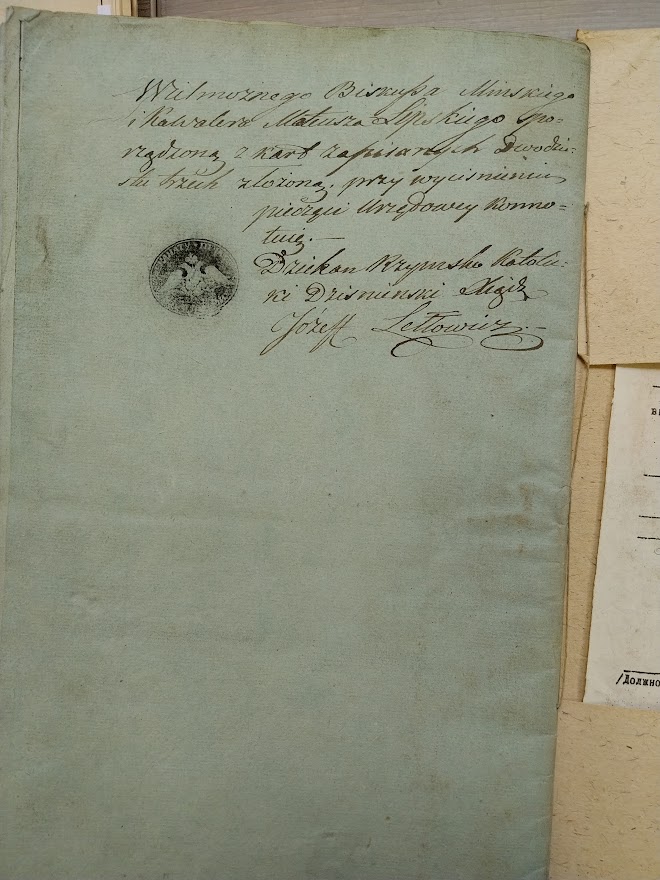 Wielmożnego Biskupa Minskiego
i Kawalera Mateusza Lipskiego Spo-
rządzoną z kart zapisanych Dwódzie-
stu trzech złożoną, przy wyciśnieniu
pieczęci Urzędowey Konno-
tuię.-
Dziekan Rzymsko Katolic-
ki Dzisnieński Xiądz
Józeff Lettowicz.-
/Должно